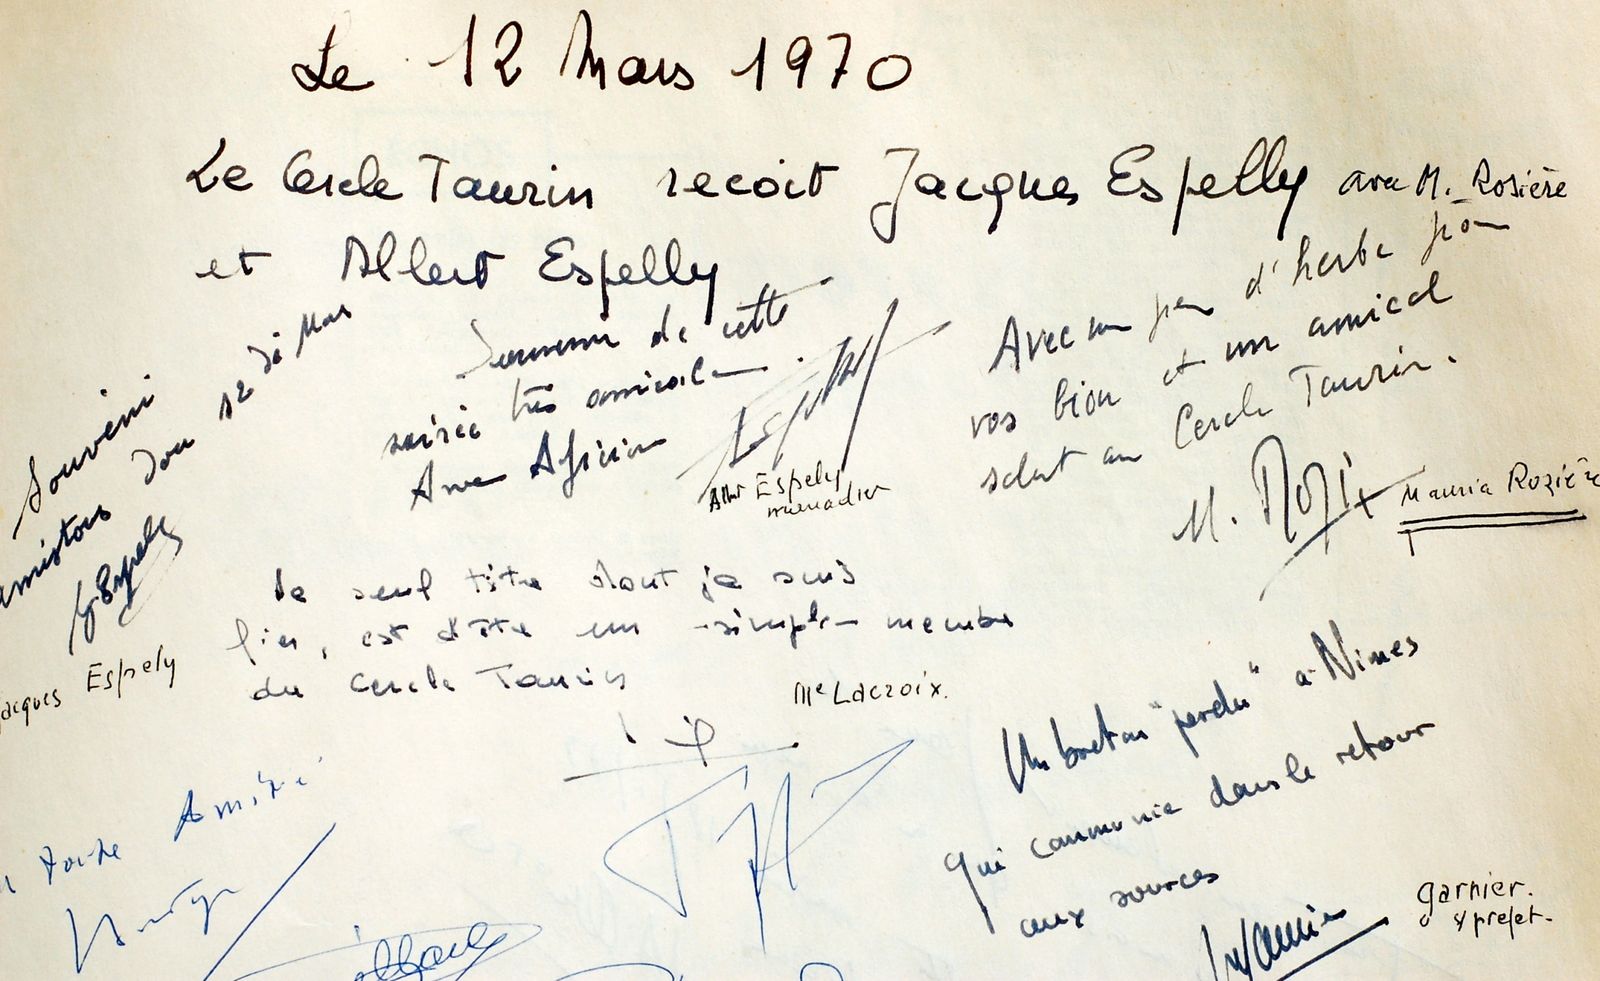 Le 12 Mars 1970
Le Cercle Taurin recoit Jacques Espelly avec M. Rosière
et Albert Espelly
Souveni
amistous dou 12 di Mars
J. Espely
Jacques Espely
Souvenir de cette
soirée très amicale.
Espelly
Albert Espely
manadier
Avec un peu d'herbe
vos biou et un amical
salut au Cercle Taurin.
M. Rozi
Mauric Rozière
Le seul titre dont je suis
fier, est d'être un simple membre
du Cercle Taurin
Me Lacroix.
Un breton "perdu" a Nimes
qui communie dans le retour
aux sources
garnier.
s/prefet.
toute Amitié